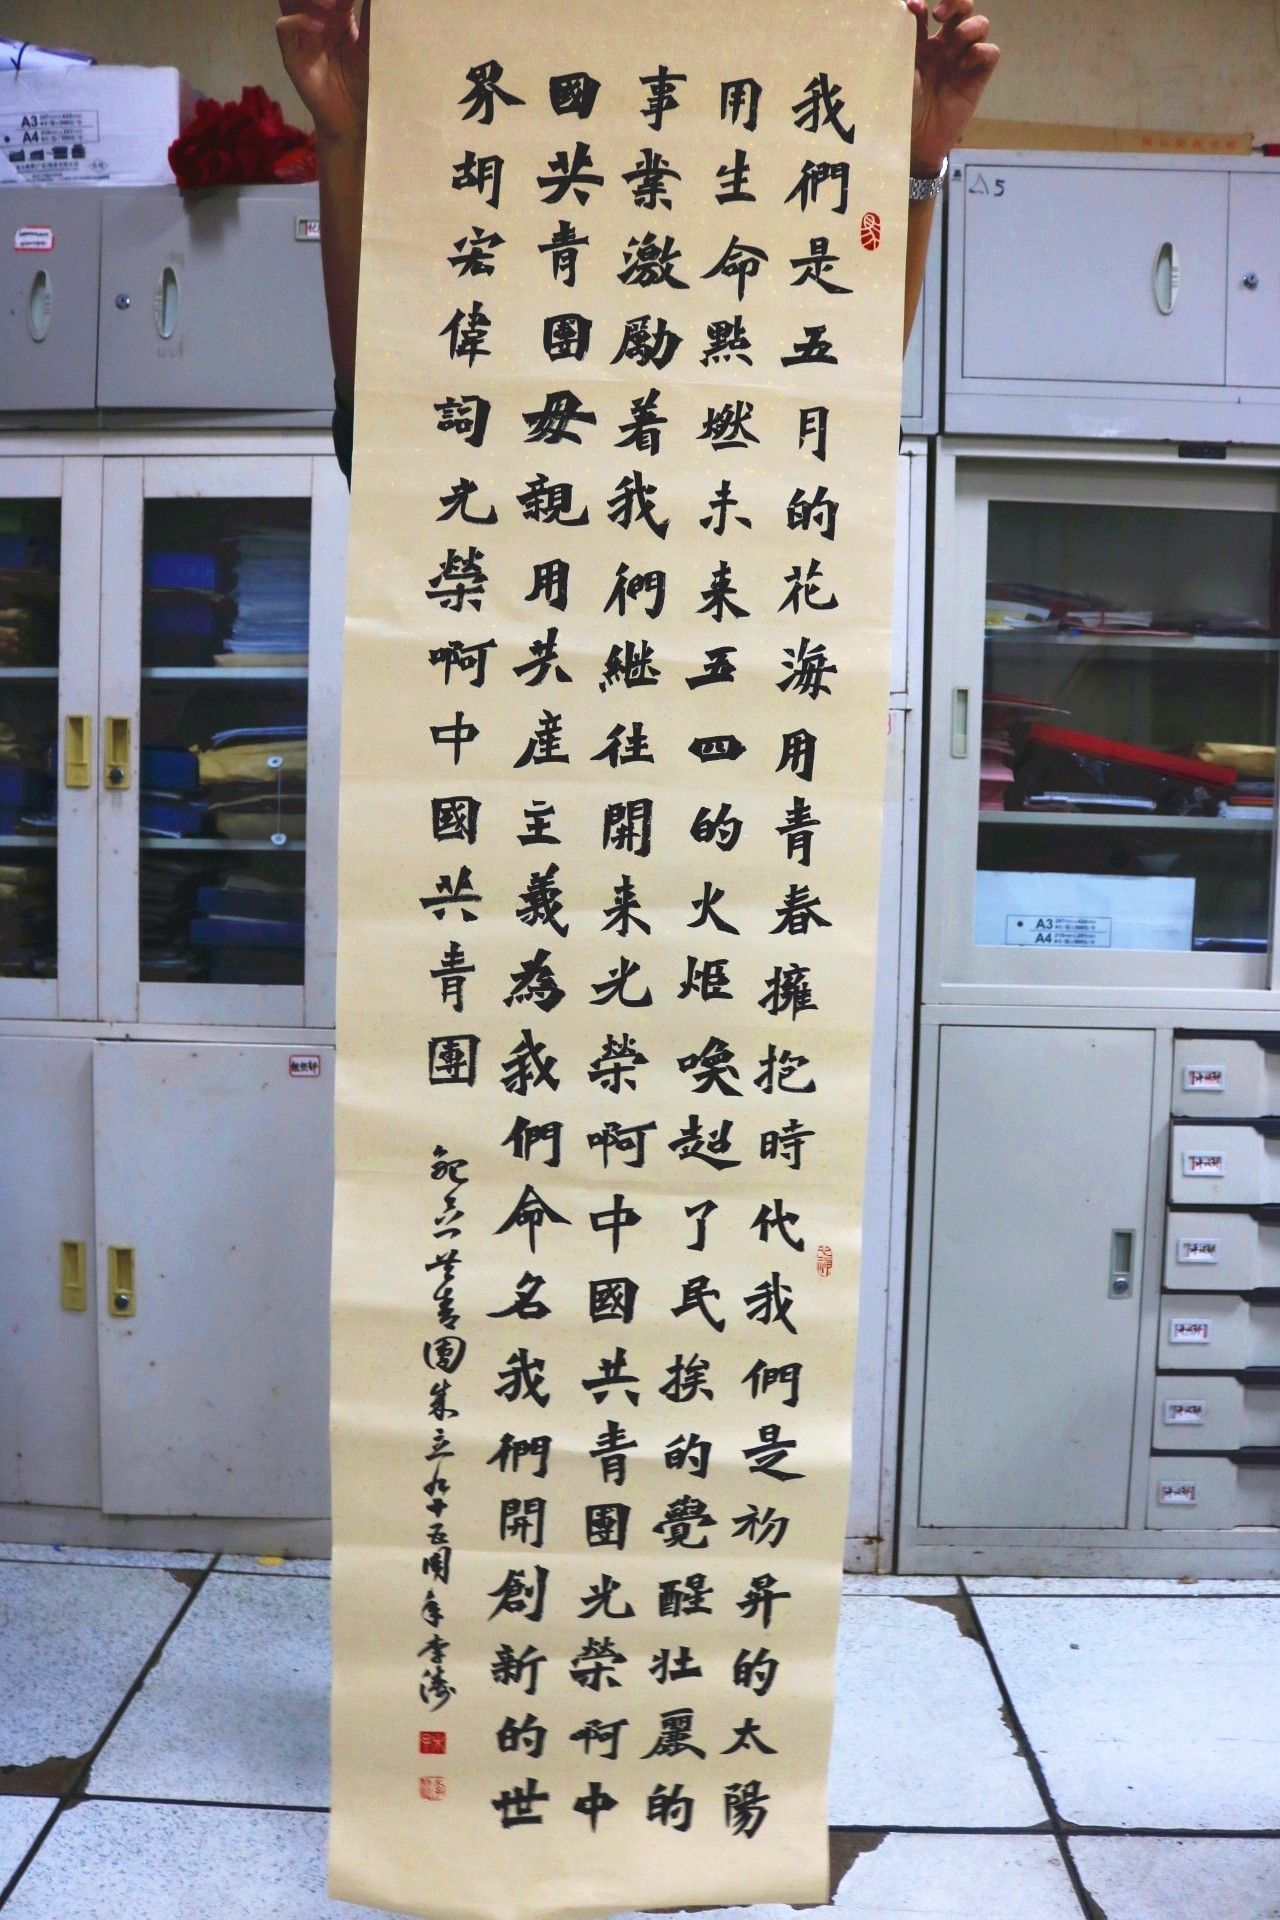 我們是五月的花海用青春擁抱時代我們是初昇的太陽
用生命點燃未来五四的火炬喚起了民挨的覺醒壮麗的
事業激勵着我們継往開来光榮啊中國共青團光榮啊中
國共青團母親用共產主義為我們命名我們開創新的世
界胡宏偉詞光榮啊中國共青團
紀念共青團成立九十五周年李濤
A3
A4
5
A3
A4